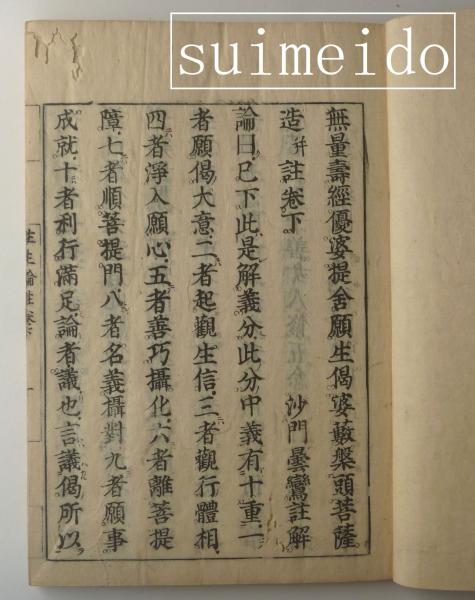 suimeido
無量壽經優婆提舍願生偈婆藪槃頭菩薩
造并註卷下 沙門曇鸞註解
論曰已下此是解義分此分中義有十重一
者願偈大意二者起觀生信三者觀行體相
四者淨入願心五者善巧攝化六者離菩提
障七者順菩提門八者名義攝對九者願事
成就十者利行滿足論者議也言議偈所以